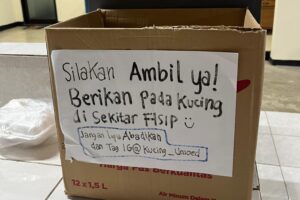 Silakan Ambil ya!
Berikan pada kucing
di sekitar FISIP
Jangan lupa Abadikan
dan Tag IG@ Kucing_Unsoed
Harga Pas Berkualitas
12 x 1,5 L
Air Minum Dalam